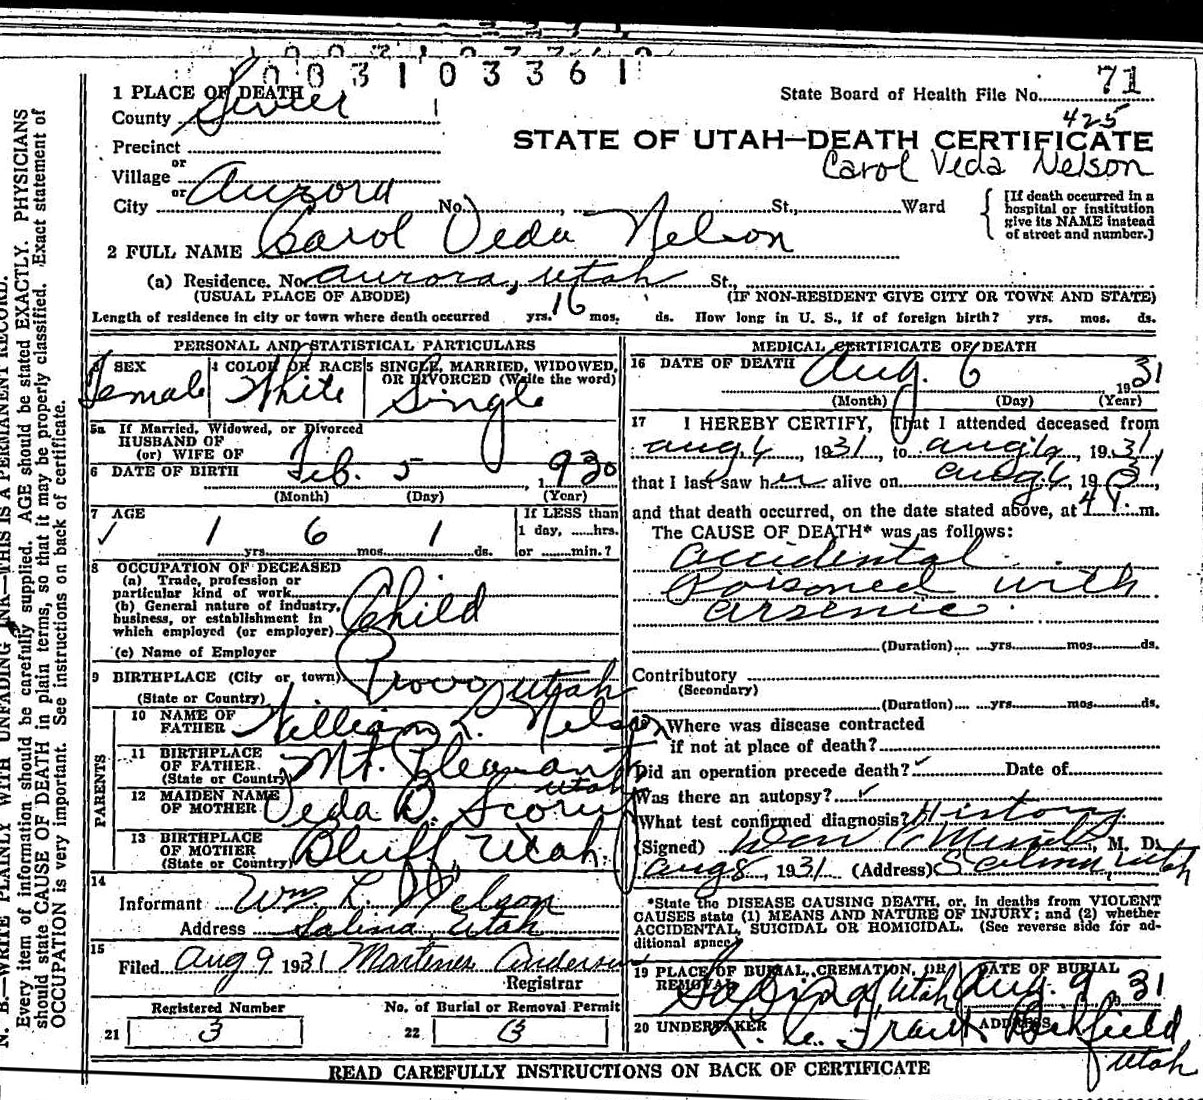 0 0 3 1 0 3 3 6 1
71
1 PLACE OF DEATH
State Board of Health File No.
County Sevier
425
STATE OF UTAH—DEATH CERTIFICATE
Precinct
Carol Veda Nelson
or
Village
or
Aurora
City No. , St., Ward
[If death occurred in a
hospital or institution
give its NAME instead
of street and number.]
2 FULL NAME Carol Veda Nelson
(a) Residence. No. Aurora, Utah St.,
(USUAL PLACE OF ABODE) (IF NON-RESIDENT GIVE CITY OR TOWN AND STATE)
Length of residence in city or town where death occurred yrs. 16 mos. ds. How long in U. S., if of foreign birth? yrs. mos. ds.
PERSONAL AND STATISTICAL PARTICULARS
3 SEX
Female
4 COLOR OR RACE
White
5 SINGLE, MARRIED, WIDOWED,
OR DIVORCED (Write the word)
Single
5a If Married, Widowed, or Divorced
HUSBAND OF
(or) WIFE OF
6 DATE OF BIRTH Feb. 5, 1930
(Month) (Day) (Year)
7 AGE
1 yrs. 6 mos. 1 ds.
If LESS than
1 day, hrs.
or min.?
8 OCCUPATION OF DECEASED
(a) Trade, profession or
particular kind of work
(b) General nature of industry,
business, or establishment in
which employed (or employer)
Child
(c) Name of Employer
9 BIRTHPLACE (City or town) Provo, Utah
(State or Country)
PARENTS
10 NAME OF
FATHER William L. Nelson
11 BIRTHPLACE
OF FATHER
(State or Country) Mt. Pleasant
Utah
12 MAIDEN NAME
OF MOTHER Veda D.
13 BIRTHPLACE
OF MOTHER
(State or Country) Bluff, Utah.
14
Informant Wm. L. Nelson
Address Salina, Utah
15
Filed Aug 9 1931 Anderson
Registrar
Registered Number
21 3
No. of Burial or Removal Permit
22
MEDICAL CERTIFICATE OF DEATH
16 DATE OF DEATH Aug. 6 1931
(Month) (Day) (Year)
17 I HEREBY CERTIFY, That I attended deceased from
Aug. 6, 1931, to Aug. 6, 1931,
that I last saw her alive on Aug. 6, 19
and that death occurred, on the date stated above, at 4 m.
The CAUSE OF DEATH* was as follows:
accidental
Poisoned with
arsenic.
(Duration) yrs. mos. ds.
Contributory
(Secondary)
(Duration) yrs. mos. ds.
18 Where was disease contracted
if not at place of death?
Did an operation precede death? Date of
Was there an autopsy?
What test confirmed diagnosis? History
(Signed) , M. D.
Aug 8, 1931 (Address) Salina, Utah
*State the DISEASE CAUSING DEATH, or, in deaths from VIOLENT
CAUSES state (1) MEANS AND NATURE OF INJURY; and (2) whether
ACCIDENTAL, SUICIDAL OR HOMICIDAL. (See reverse side for ad-
ditional space)
19 PLACE OF BURIAL, CREMATION, OR
REMOVAL
Salina, Utah
DATE OF BURIAL
Aug. 9, 31
20 UNDERTAKER
ADDRESS
Richfield
Utah
READ CAREFULLY INSTRUCTIONS ON BACK OF CERTIFICATE
N. B.—WRITE PLAINLY WITH UNFADING INK—THIS IS A PERMANENT RECORD.
Every item of information should be carefully supplied. AGE should be stated EXACTLY. PHYSICIANS
should state CAUSE OF DEATH in plain terms, so that it may be properly classified. Exact statement of
OCCUPATION is very important. See instructions on back of certificate.